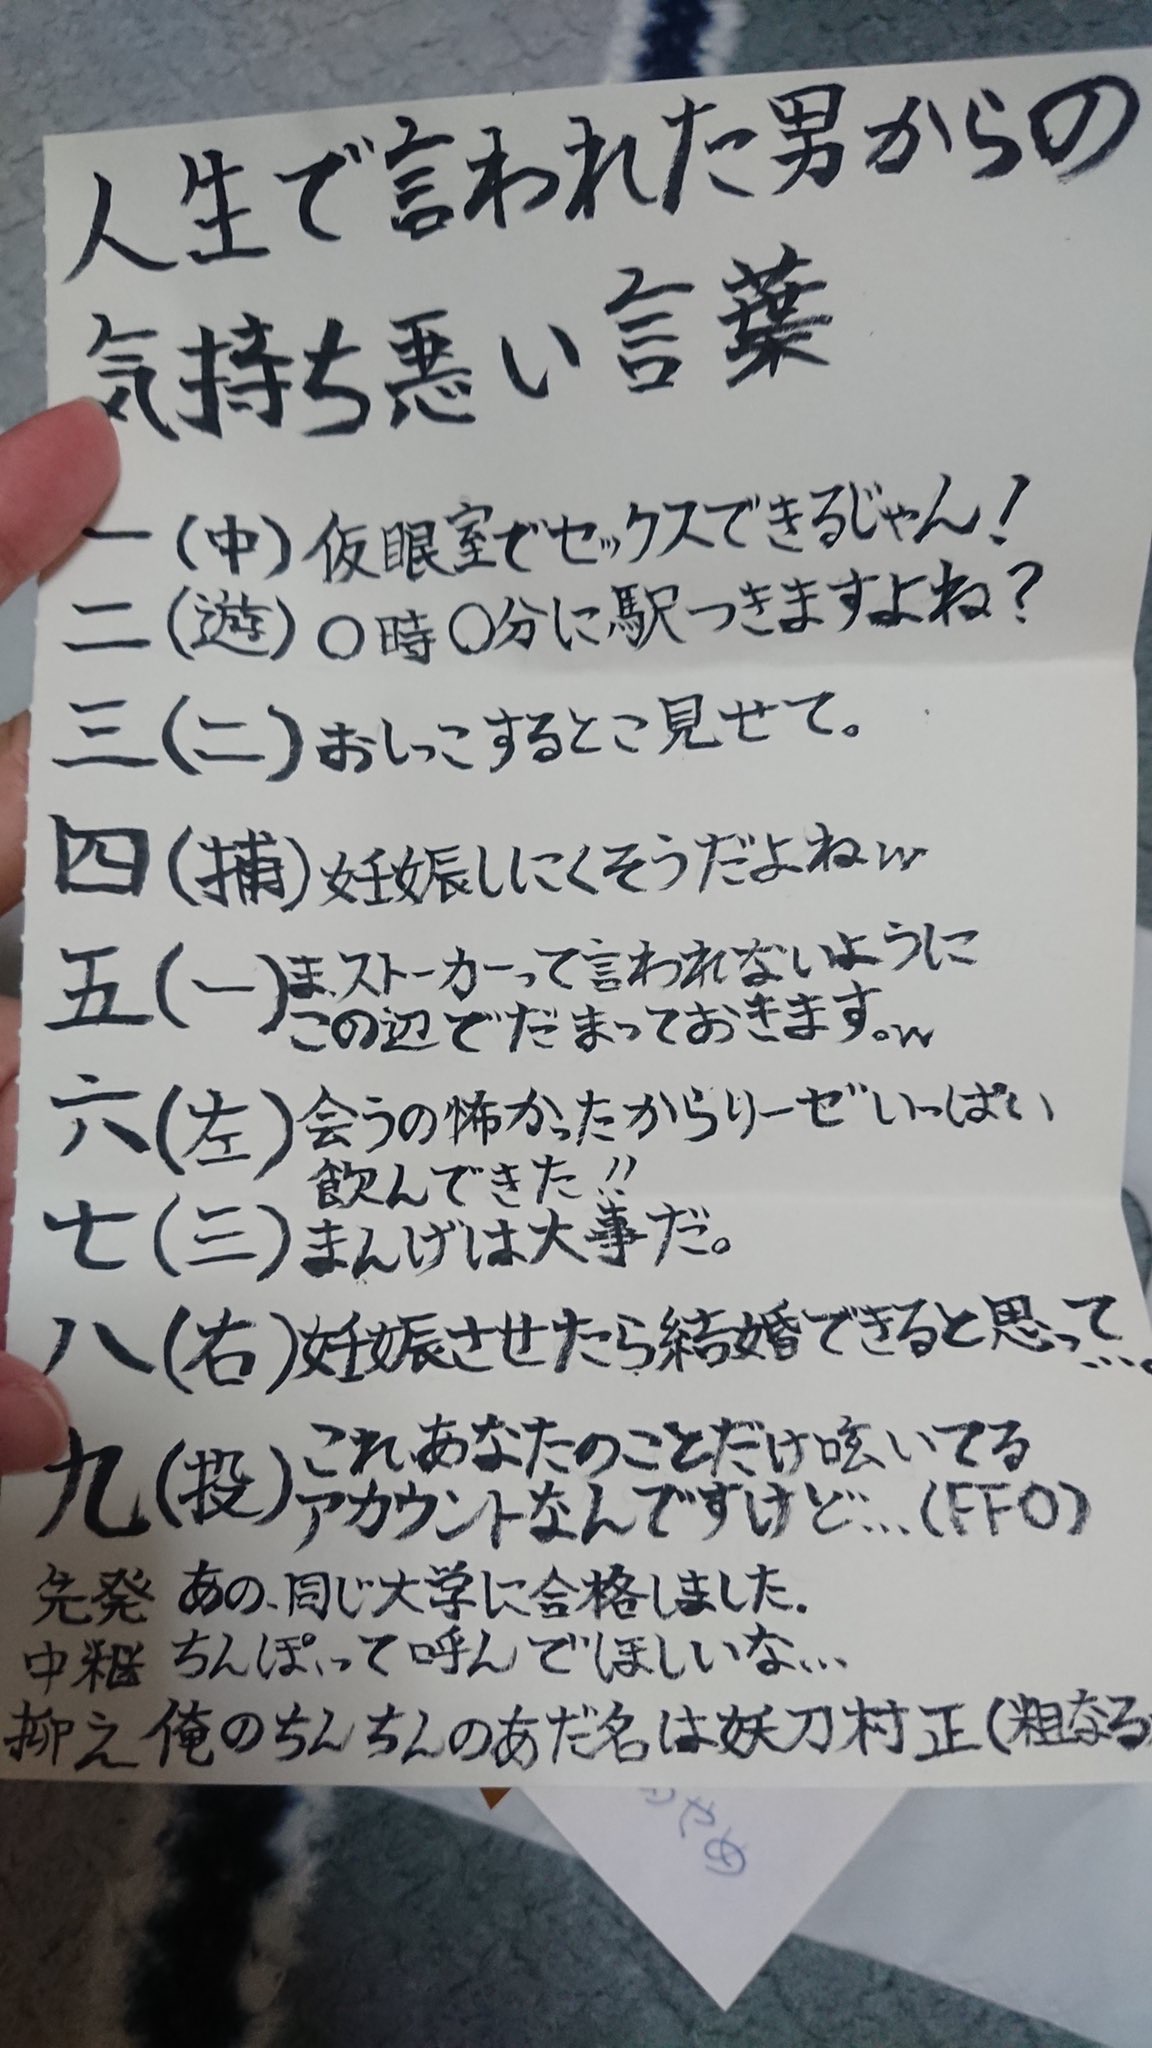 人生で言われた男からの
気持ち悪い言葉
一(中)仮眠室でセックスできるじゃん!
二(遊)〇時〇分に駅つきますよね?
三(二)おしっこするとこ見せて。
四(捕)妊娠しにくそうだよねw
五(一)ま、ストーカーって言われないように
この辺でだまっておきます。w
六(左)会うの怖かったからリーゼいっぱい
飲んできた!!
七(三)まんげは大事だ。
八(右)妊娠させたら結婚できると思って…。
九(投)これあなたのことだけ呟いてる
アカウントなんですけど…(FF0)
先発 あの、同じ大学に合格しました。
中継 ちんぽ、って呼んでほしいな…
抑え 俺のちんちんのあだ名は妖刀村正(粗なる
あやめ